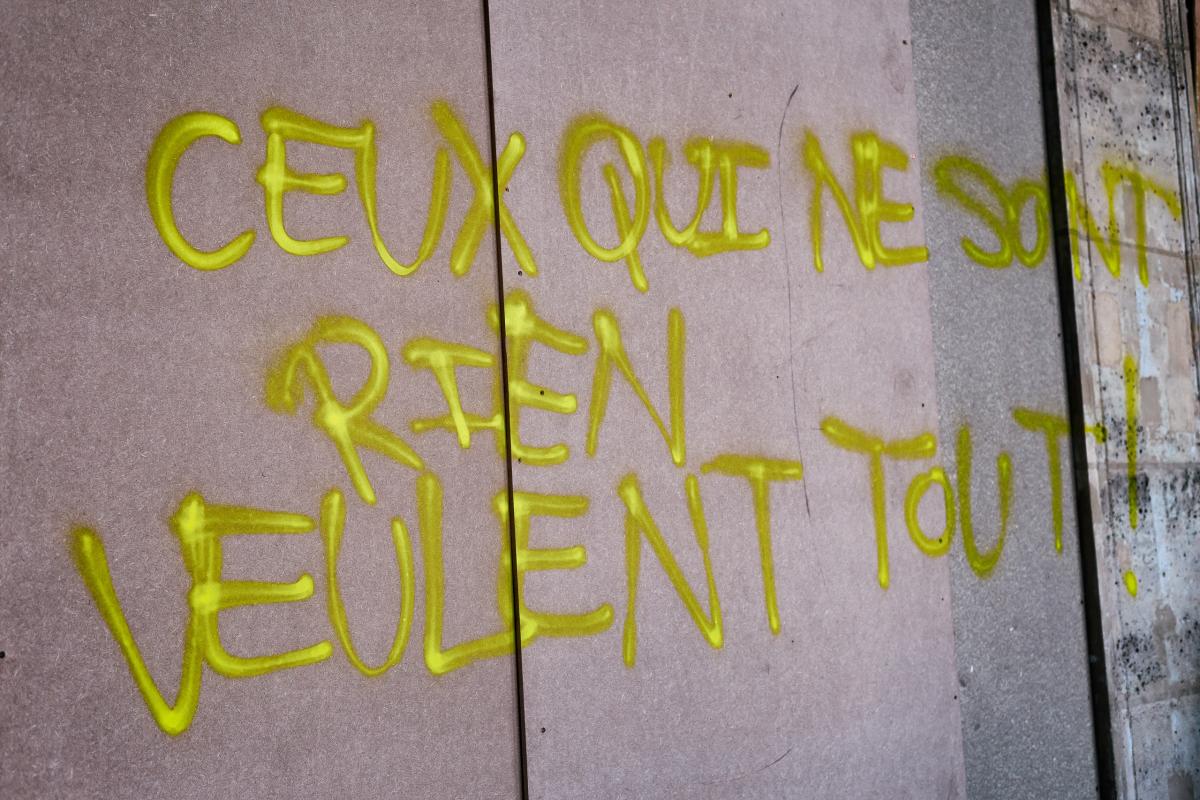 CEUX QUI NE SONT
RIEN
VEULENT TOUT !